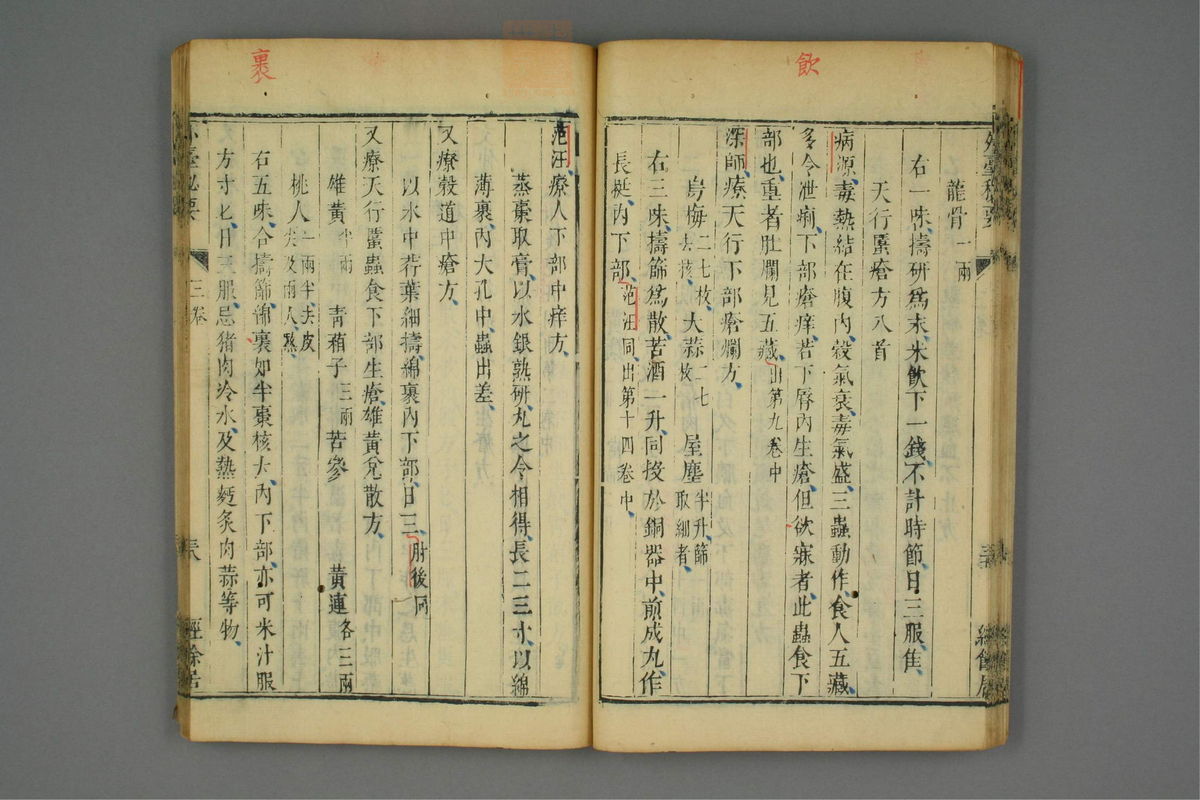 飲
外臺秘要
龍骨一兩
右一味擣研爲末米飲下一錢不計時節日三服雋
天行䘌瘡方八首
病源毒熱結在腹內穀氣衰毒氣盛三蟲動作食人五藏
多令泄痢下部瘡痒若下唇內生瘡但欲寐者此蟲食下
部也重者肚爛見五藏出第九卷中
深師療天行下部瘡爛方
烏梅二七枚去核 大蒜二七枚 屋塵半升篩取細者
右三味擣篩爲散苦酒一升同投於銅器中煎成丸作
長挺內下部范汪同出第十四卷中
裹
范汪療人下部中痒方
蒸棗取膏以水銀熟研丸之令相得長二三寸以綿
薄裹內大孔中蟲出差
又療穀道中瘡方
以水中荇葉細擣綿裹內下部日三肘後同
又療天行䘌蟲食下部生瘡雄黃兌散方
雄黃半兩 青葙子三兩 苦參 黃連各三兩
桃人一兩半去皮尖及兩人熬
右五味合擣篩綿裹如半棗核大內下部亦可米汁服
方寸匕日三服忌猪肉冷水及熱麪炙肉蒜等物
外臺祕要 三卷 經餘居